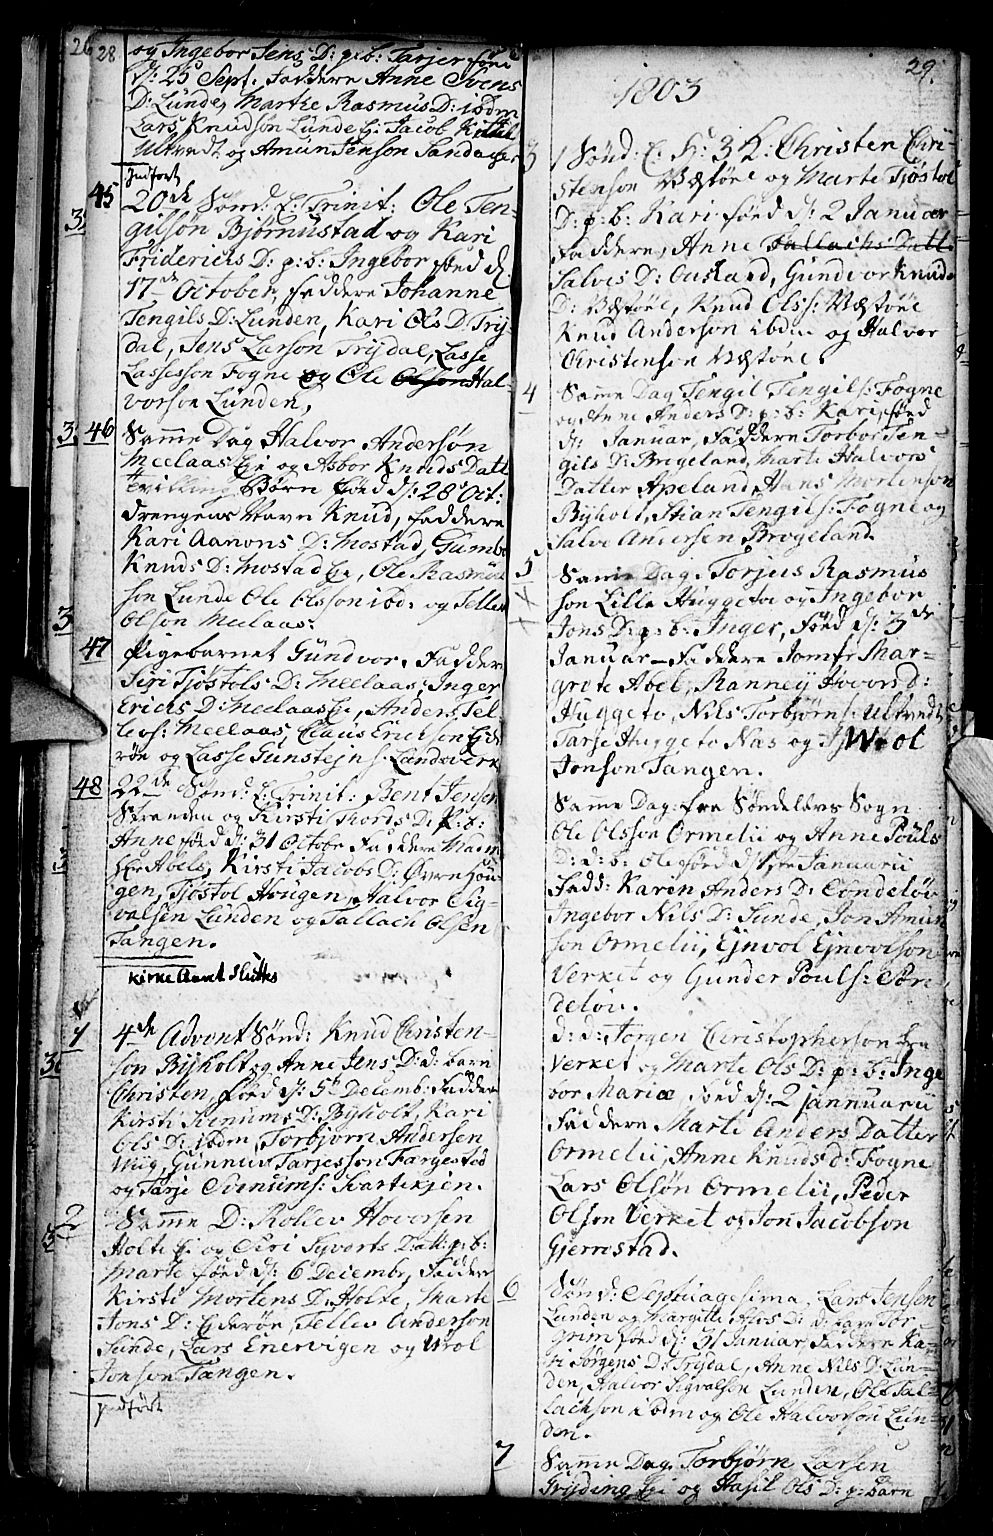 26 28
og Ingebor Jens D: p: b: Tarjer föd
d: 25 Sept: Faddere Anne Svens
D: Lunde, Marthe Rasmus D: ibdm
Lars Knudsön Lunde Ej: Jacob
Ultvedt og Amun Jenson Sandager
Indfört
45 20de Sönd: E: Trinit: Ole Ten-
gilsön Björnustad og Kari
Friderichs D: p: b: Ingebor föed d:
17de October, Faddere Johanne
Tengils D: Lunden, Kari Ols D: Trÿ-
dal, Jens Larsön Trÿdal, Lasse
Lassesson Fogne og Ole Olson Hal-
vorson Lunden,
3 46 Samme Dag Halvor Andersön
Meelaas Eje og Asbor Knuds Datt
tvilling Börn föed d: 28 Oct:
drengens Navn Knud, Faddere
Kari Aanons D: Mostad, Gumbe
Knuds D: Mostad Eje, Ole Rasmus
son Lunde Ole Olsson ibd: og Tellef
Olson Meelaas.
3
47 Pigebarnet Gundvor. Faddere
Siri Tjöstols D: Meelaas, Inger
Erichs D: Meelaas Eje, Anders Tel
lefs: Meelaas, Claus Ericksen Ejde
röe og Lasse Gunstejns: Landsverk
48 22de Sönd: E: Trinit: Bent Jensen
Stranden og Kirsti Thords D: p: b:
Anne föed d: 31 Octobr Faddere Mam
sel Abels, Kirsti Jacobs D: Övre Hou
gen, Tjöstol Hougen, Halvor Sig-
valsen Lunden og Tallach Olsen
Tangen.
Kirke Aaret Sluttes
1 4de Advent Sönd: Knud Christen-
son Bÿholt og Anne Jens D: d: barn
Christen, föed d: 5t Decemb: Faddere
Kirsti Svenums D: Bÿholt, Kari
Ols D: ibdm, Torbjörn Andersen
Mÿg, Gunnuv Tarjesson Fargestad
og Tarje Svenums: Svartekjen.
2 Samme D: Rollev Hoversen
Holte Ej: og Siri Sÿverts Datt: p: b:
Marte föed d: 6 Decembr, Faddere
Kirsti Mortens D: Holte, Marte
Jons D: Ejderöe, Tellev Anderson
Sunde, Lars Enervigen og Wrol
Jonson Tangen.
indfört
29.
1803
3 1 Sönd: E: H: 3 K: Christen Chri-
stenson Væstöel og Marte Tjöstol
D: p: b: Kari föed d: 2 Januar
Faddere, Anne Tallachs Datt:
Salves D: Ouskand, Gundvor Knuds
D: Væstöel, Knud Olss: Væstöel
Knud Anderson ibdm og Halvor
Christensen Væstöel.
4 Samme Dag Tengil Tengils: Fogne
og Anne Anders D: p: b: Kari, föed
d: Januar, Faddere Torbor Ten-
gils D: Brogeland, Marte Halvors
Datter Apeland, Hans Mortenson
Bÿholt, Stian Tengils: Fogne og
Salve Andersen Brogeland.
5 Samme Dag. Torjus Rasmus
son Lille Huggeto og Ingebor
Jons D: p: b: Inger, föed d: 3de
Januar - Faddere Jomfr Mar-
grete Abel, Ranneÿ Hovers d:
Huggeto, Nils Torbjörns: Ultvedt
Tarje Huggeto Næs og Wrol
Jonson Tangen.
Samme Dag: fra Söndeløvs Sogn
Ole Olsson Ormelii og Anne Pouls
D: d: b: Ole föed d: 1ste Januarii
Fadd: Karen Anders D: Sondelöv
Ingebor Nils D: Sunde, Jon Amun
son Ormelii, Ejnvol Ejnvolson
Verket og Gunder Pouls: Sön
delöv.
d: d: Jörgen Christopherson fra
Verket og Marte Ols D: p: b: Inge
bor Maria föed d: 2 jannuarii
Faddere Marte Anders Datter
Ormelii, Anne Knuds d: Fogne
Lars Olsön Ormelii, Peder
Olson Verket og Jon Jacobson
Gjernstad.
6 Sönd: Septuagesima, Lars Jensen
Lunden og Margitte Olfos D: d: barn Tor-
grim föed d: 31 Januar, Faddere Ka-
ri Jörgens D: Trÿdal, Anne Nils D: Lun-
den, Halvor Sigvalson Lunden, Ole Tal-
lachson ibdm og Ole Halvorson Lun-
den.
7 Samme Dag. Torbjörn Larsen
Grÿding Eje og Hasil Ols D: p: barn